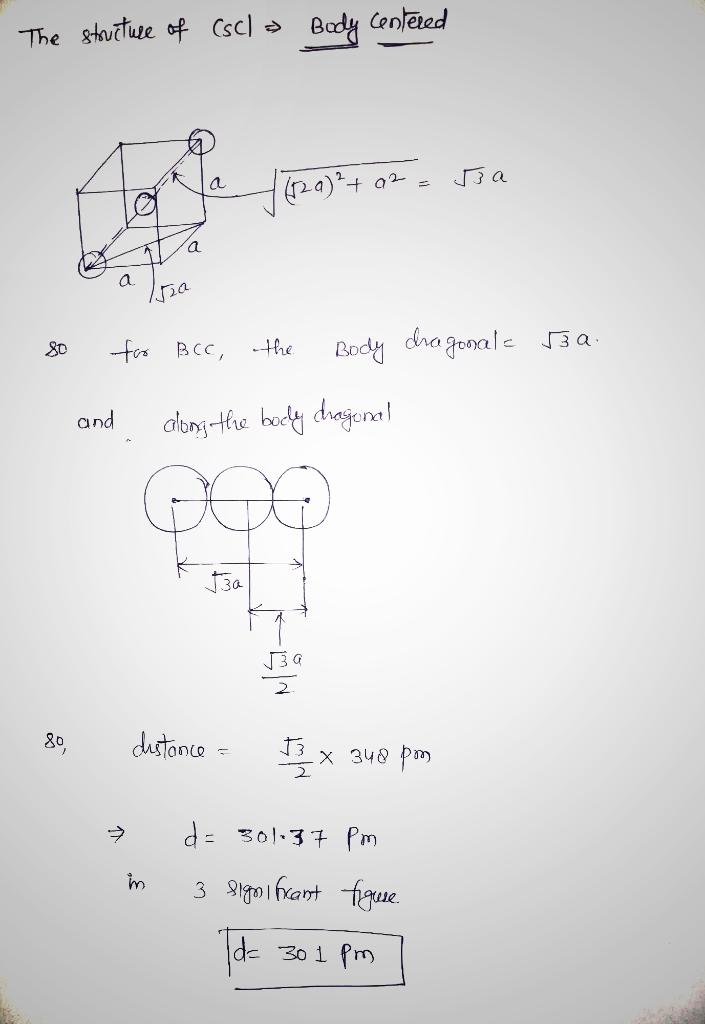 The structure of CsCl ⇒ Body Centered
a
√((√2a)²+a²) = √3a
a
a
√2a
so for BCC, the Body diagonal = √3a.
and along the body diagonal
√3a
√3a
2
so, distance = √3/2 × 348 pm
⇒ d = 301.37 Pm
in 3 significant figure.
d= 301 Pm